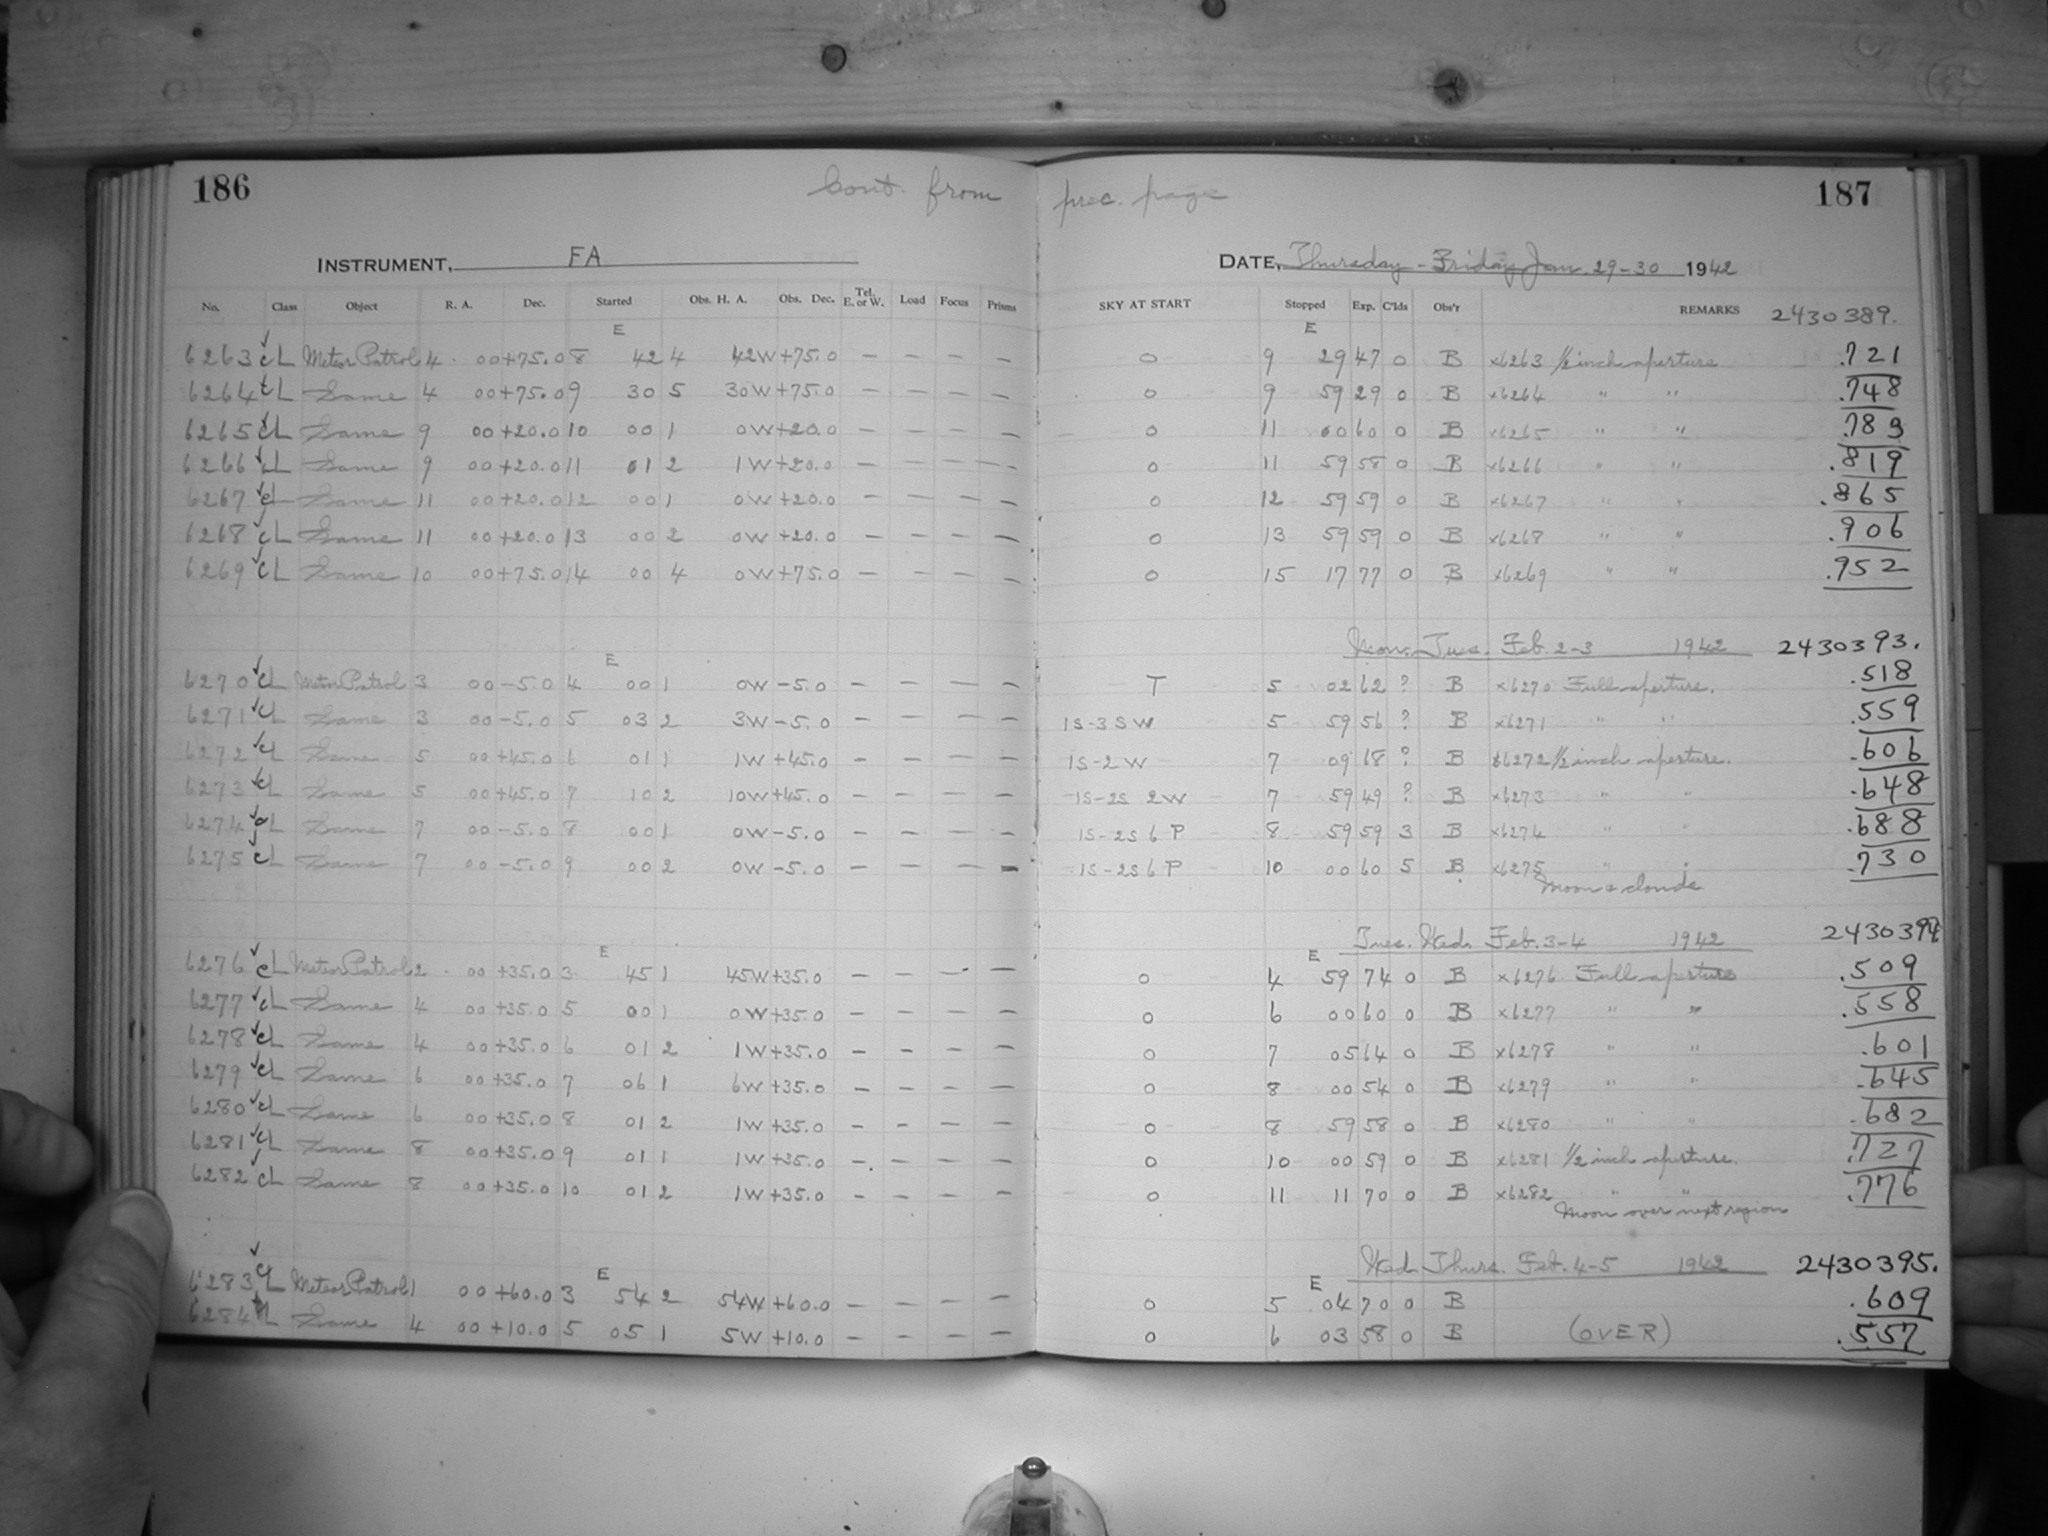 186 Cont. from prec. page 187
INSTRUMENT, FA DATE, Thursday - Friday Jan. 29-30 1942
No. Class Object R. A. Dec. Started Obs. H. A. Obs. Dec. Tel. E. or W. Load Focus Prisms SKY AT START Stopped Exp. C'lds Obs'r REMARKS 2430389.
E E
6263 cL Meteor Patrol 4 00 +75.0 8 42 4 42W +75.0 — — — — 0 9 29 47 0 B x6263 1/2 inch aperture .721
6264 cL Same 4 00 +75.0 9 30 5 30W +75.0 — — — — 0 9 59 29 0 B x6264 " " .748
6265 cL Same 9 00 +20.0 10 00 1 0W +20.0 — — — — 0 11 00 60 0 B x6265 " " .783
6266 cL Same 9 00 +20.0 11 01 2 1W +20.0 — — — — 0 11 59 58 0 B x6266 " " .819
6267 cL Same 11 00 +20.0 12 00 1 0W +20.0 — — — — 0 12 59 59 0 B x6267 " " .865
6268 cL Same 11 00 +20.0 13 00 2 0W +20.0 — — — — 0 13 59 59 0 B x6268 " " .906
6269 cL Same 10 00 +75.0 14 00 4 0W +75.0 — — — — 0 15 17 77 0 B x6269 " " .952
Mon. Tues. Feb. 2-3 1942 2430393.
E
6270 cL Meteor Patrol 3 00 -5.0 4 00 1 0W -5.0 — — — — T 5 02 62 ? B x6270 Full aperture. .518
6271 cL Same 3 00 -5.0 5 03 2 3W -5.0 — — — — 1S-3SW 5 59 56 ? B x6271 " " .559
6272 cL Same 5 00 +45.0 6 01 1 1W +45.0 — — — — 1S-2W 7 09 68 ? B x6272 1/2 inch aperture. .606
6273 cL Same 5 00 +45.0 7 10 2 10W +45.0 — — — — 1S-2S 2W 7 59 49 ? B x6273 " " .648
6274 cL Same 7 00 -5.0 8 00 1 0W -5.0 — — — — 1S-2S 6 P 8 59 59 3 B x6274 " " .688
6275 cL Same 7 00 -5.0 9 00 2 0W -5.0 — — — — 1S-2S 6 P 10 00 60 5 B x6275 " " .730
Moon & clouds
Tues. Wed. Feb. 3-4 1942 2430394
E E
6276 cL Meteor Patrol 2 00 +35.0 3 45 1 45W +35.0 — — — — 0 4 59 74 0 B x6276 Full aperture .509
6277 cL Same 4 00 +35.0 5 00 1 0W +35.0 — — — — 0 6 00 60 0 B x6277 " " .558
6278 cL Same 4 00 +35.0 6 01 2 1W +35.0 — — — — 0 7 05 64 0 B x6278 " " .601
6279 cL Same 6 00 +35.0 7 06 1 6W +35.0 — — — — 0 8 00 54 0 B x6279 " " .645
6280 cL Same 6 00 +35.0 8 01 2 1W +35.0 — — — — 0 8 59 58 0 B x6280 " " .682
6281 cL Same 8 00 +35.0 9 01 1 1W +35.0 — — — — 0 10 00 59 0 B x6281 1/2 inch aperture. .727
6282 cL Same 8 00 +35.0 10 01 2 1W +35.0 — — — — 0 11 11 70 0 B x6282 " " .776
Moon over next region
Wed. Thurs. Feb. 4-5 1942 2430395.
E E
6283 cL Meteor Patrol 1 00 +60.0 3 54 2 54W +60.0 — — — — 0 5 04 70 0 B .609
6284 Same 4 00 +10.0 5 05 1 5W +10.0 — — — — 0 6 03 58 0 B (OVER) .557